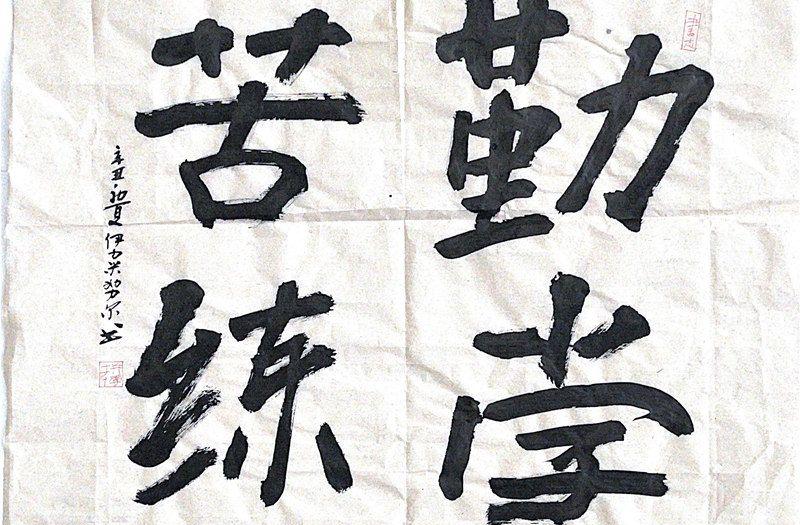 勤学
苦练
辛丑初夏伊力努尔书